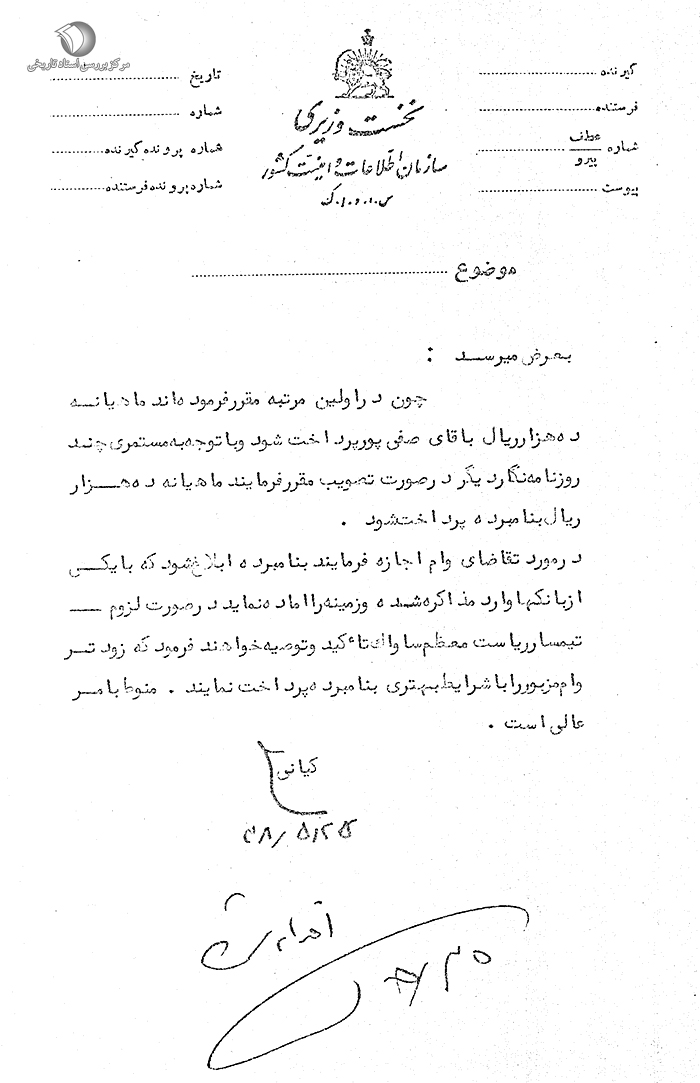 مرکز بررسی اسناد تاریخی
نخست وزیری
سازمان اطلاعات و امنیت کشور
س.ا.و.ا.ک
گیرنده
فرستنده
شماره عطف
پیرو
پیوست
تاریخ
شماره
شماره پرونده گیرنده
شماره پرونده فرستنده
موضوع
بعرض میرسد :
چون در اولین مرتبه مقرر فرموده‌اند ماهیانه
ده هزار ریال باقای صفی پور پرداخت شود و با توجه به مستمری چند
روزنامه نگار دیگر در صورت تصویب مقرر فرمایند ماهیانه ده هزار
ریال بنامبرده پرداخت شود .
در مورد تقاضای وام اجازه فرمایند بنامبرده ابلاغ شود که با یکی
از بانکها وارد مذاکره شده و زمینه را اماده نماید در صورت لزوم
تیمسار ریاست معظم ساواک تاٴکید و توصیه خواهند فرمود که زود تر
وام مزبور را با شرایط بهتری بنامبرده پرداخت نمایند . منوط بامر
عالی است .
کیانی
اقدام شد